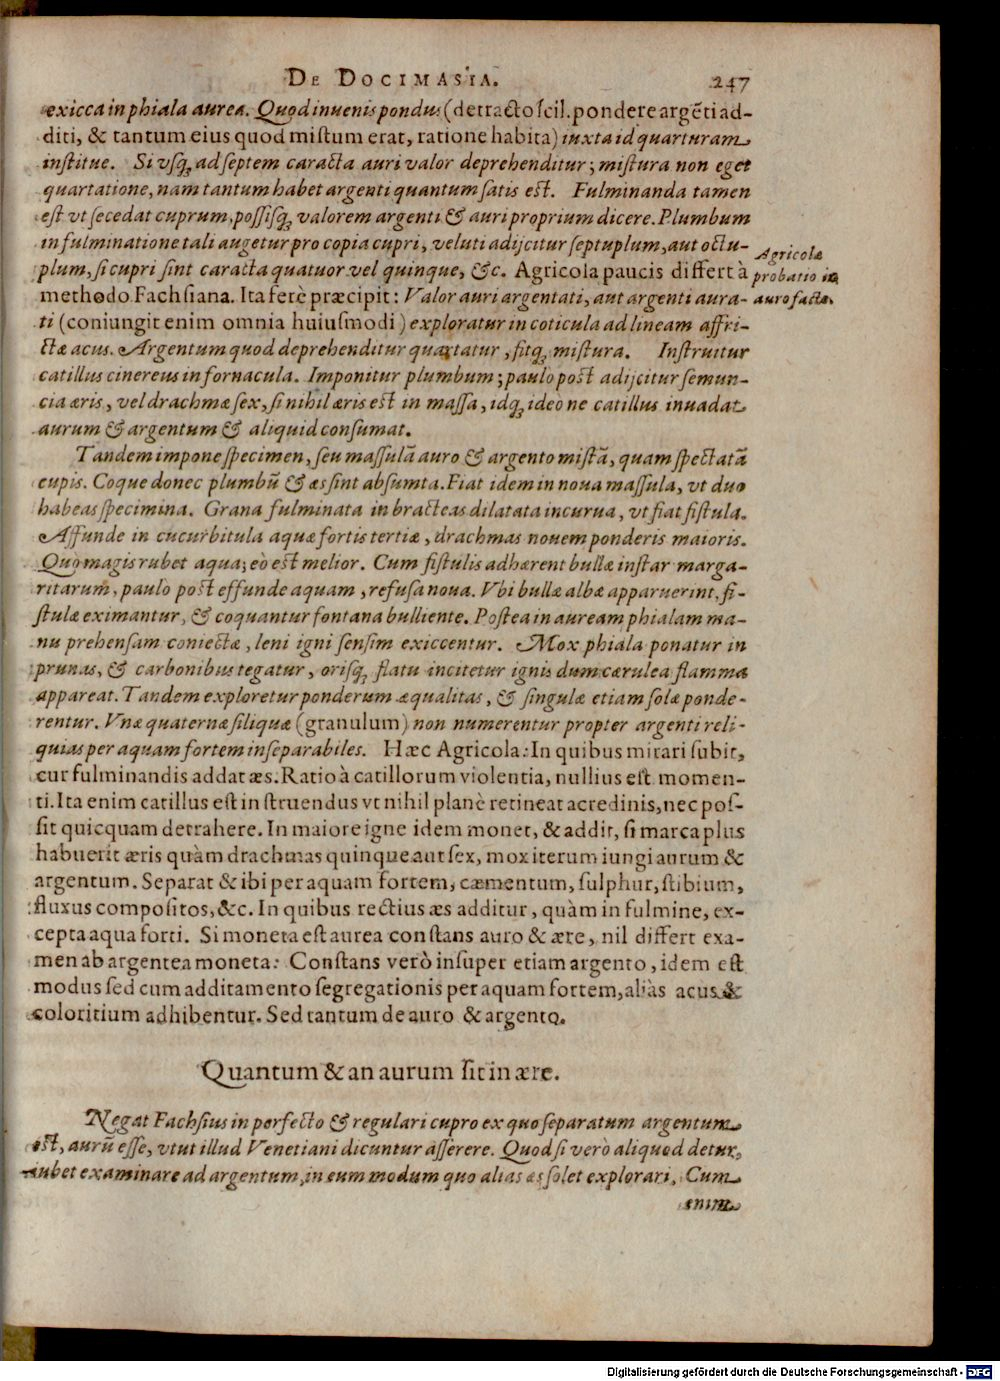 DE DOCIMASIA. 247
exicca in phiala aurea. Quod inuenis pondus (detracto scil. pondere argẽti ad-
diti, & tantum eius quod mistum erat, ratione habita) iuxta id quarturam
institue. Si vsq; ad septem caracta auri valor deprehenditur; mistura non eget
quartatione, nam tantum habet argenti quantum satis est. Fulminanda tamen
est vt secedat cuprum, possisq; valorem argenti & auri proprium dicere. Plumbum
in fulminatione tali augetur pro copia cupri, veluti adijcitur septuplum, aut octu-
plum, si cupri sint caracta quatuor vel quinque, &c. Agricola paucis differt à
methodo Fachsiana. Ita ferè præcipit: Valor auri argentati, aut argenti aura-
ti (coniungit enim omnia huiusmodi) exploratur in coticula ad lineam affri-
ctæ acus. Argentum quod deprehenditur quartatur, fitq; mistura. Instruitur
catillus cinereus in fornacula. Imponitur plumbum; paulo post adijcitur semun-
cia æris, vel drachmæ sex, si nihil æris est in massa, idq; ideo ne catillus inuadat
aurum & argentum & aliquid consumat.
Agricolæ
probatio in
auro facta.
Tandem impone specimen, seu massulã auro & argento mistã, quam spectatã
cupis. Coque donec plumbũ & æs sint absumta. Fiat idem in noua massula, vt duo
habeas specimina. Grana fulminata in bracteas dilatata incurua, vt fiat fistula.
Affunde in cucurbitula aquæ fortis tertiæ, drachmas nouem ponderis maioris.
Quò magis rubet aqua; eò est melior. Cum fistulis adhærent bullæ instar marga-
ritarum, paulo post effunde aquam, refusa noua. Vbi bullæ albæ apparuerint, fi-
stulæ eximantur, & coquantur fontana bulliente. Postea in auream phialam ma-
nu prehensam coniectæ, leni igni sensim exiccentur. Mox phiala ponatur in
prunas, & carbonibus tegatur, orisq; flatu incitetur ignis dum cærulea flamma
appareat. Tandem exploretur ponderum æqualitas, & singulæ etiam solæ ponde-
rentur. Vnæ quaternæ siliquæ (granulum) non numerentur propter argenti reli-
quias per aquam fortem inseparabiles. Hæc Agricola: In quibus mirari subit,
cur fulminandis addat æs. Ratio à catillorum violentia, nullius est momen-
ti. Ita enim catillus est instruendus vt nihil planè retineat acredinis, nec pos-
sit quicquam detrahere. In maiore igne idem monet, & addit, si marca plus
habuerit æris quàm drachmas quinque aut sex, mox iterum iungi aurum &
argentum. Separat & ibi per aquam fortem, cæmentum, sulphur, stibium,
fluxus compositos, &c. In quibus rectius æs additur, quàm in fulmine, ex-
cepta aqua forti. Si moneta est aurea constans auro & ære, nil differt exa-
men ab argentea moneta: Constans verò insuper etiam argento, idem est
modus sed cum additamento segregationis per aquam fortem, aliàs acus &
coloritium adhibentur. Sed tantum de auro & argento.
Quantum & an aurum sit in ære.
Negat Fachsius in perfecto & regulari cupro ex quo separatum argentum
est, aurũ esse, vtut illud Venetiani dicuntur asserere. Quod si verò aliquod detur,
iubet examinare ad argentum, in eum modum quo alias æs solet explorari. Cum
enim
Digitalisierung gefördert durch die Deutsche Forschungsgemeinschaft - DFG